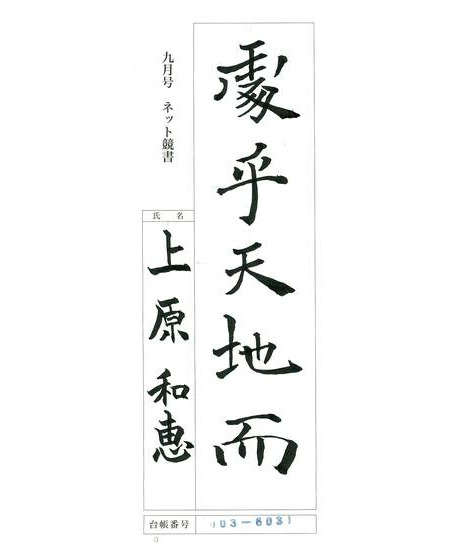 處乎天地而
九月号 ネット競書
氏 名
上原 和恵
台帳番号